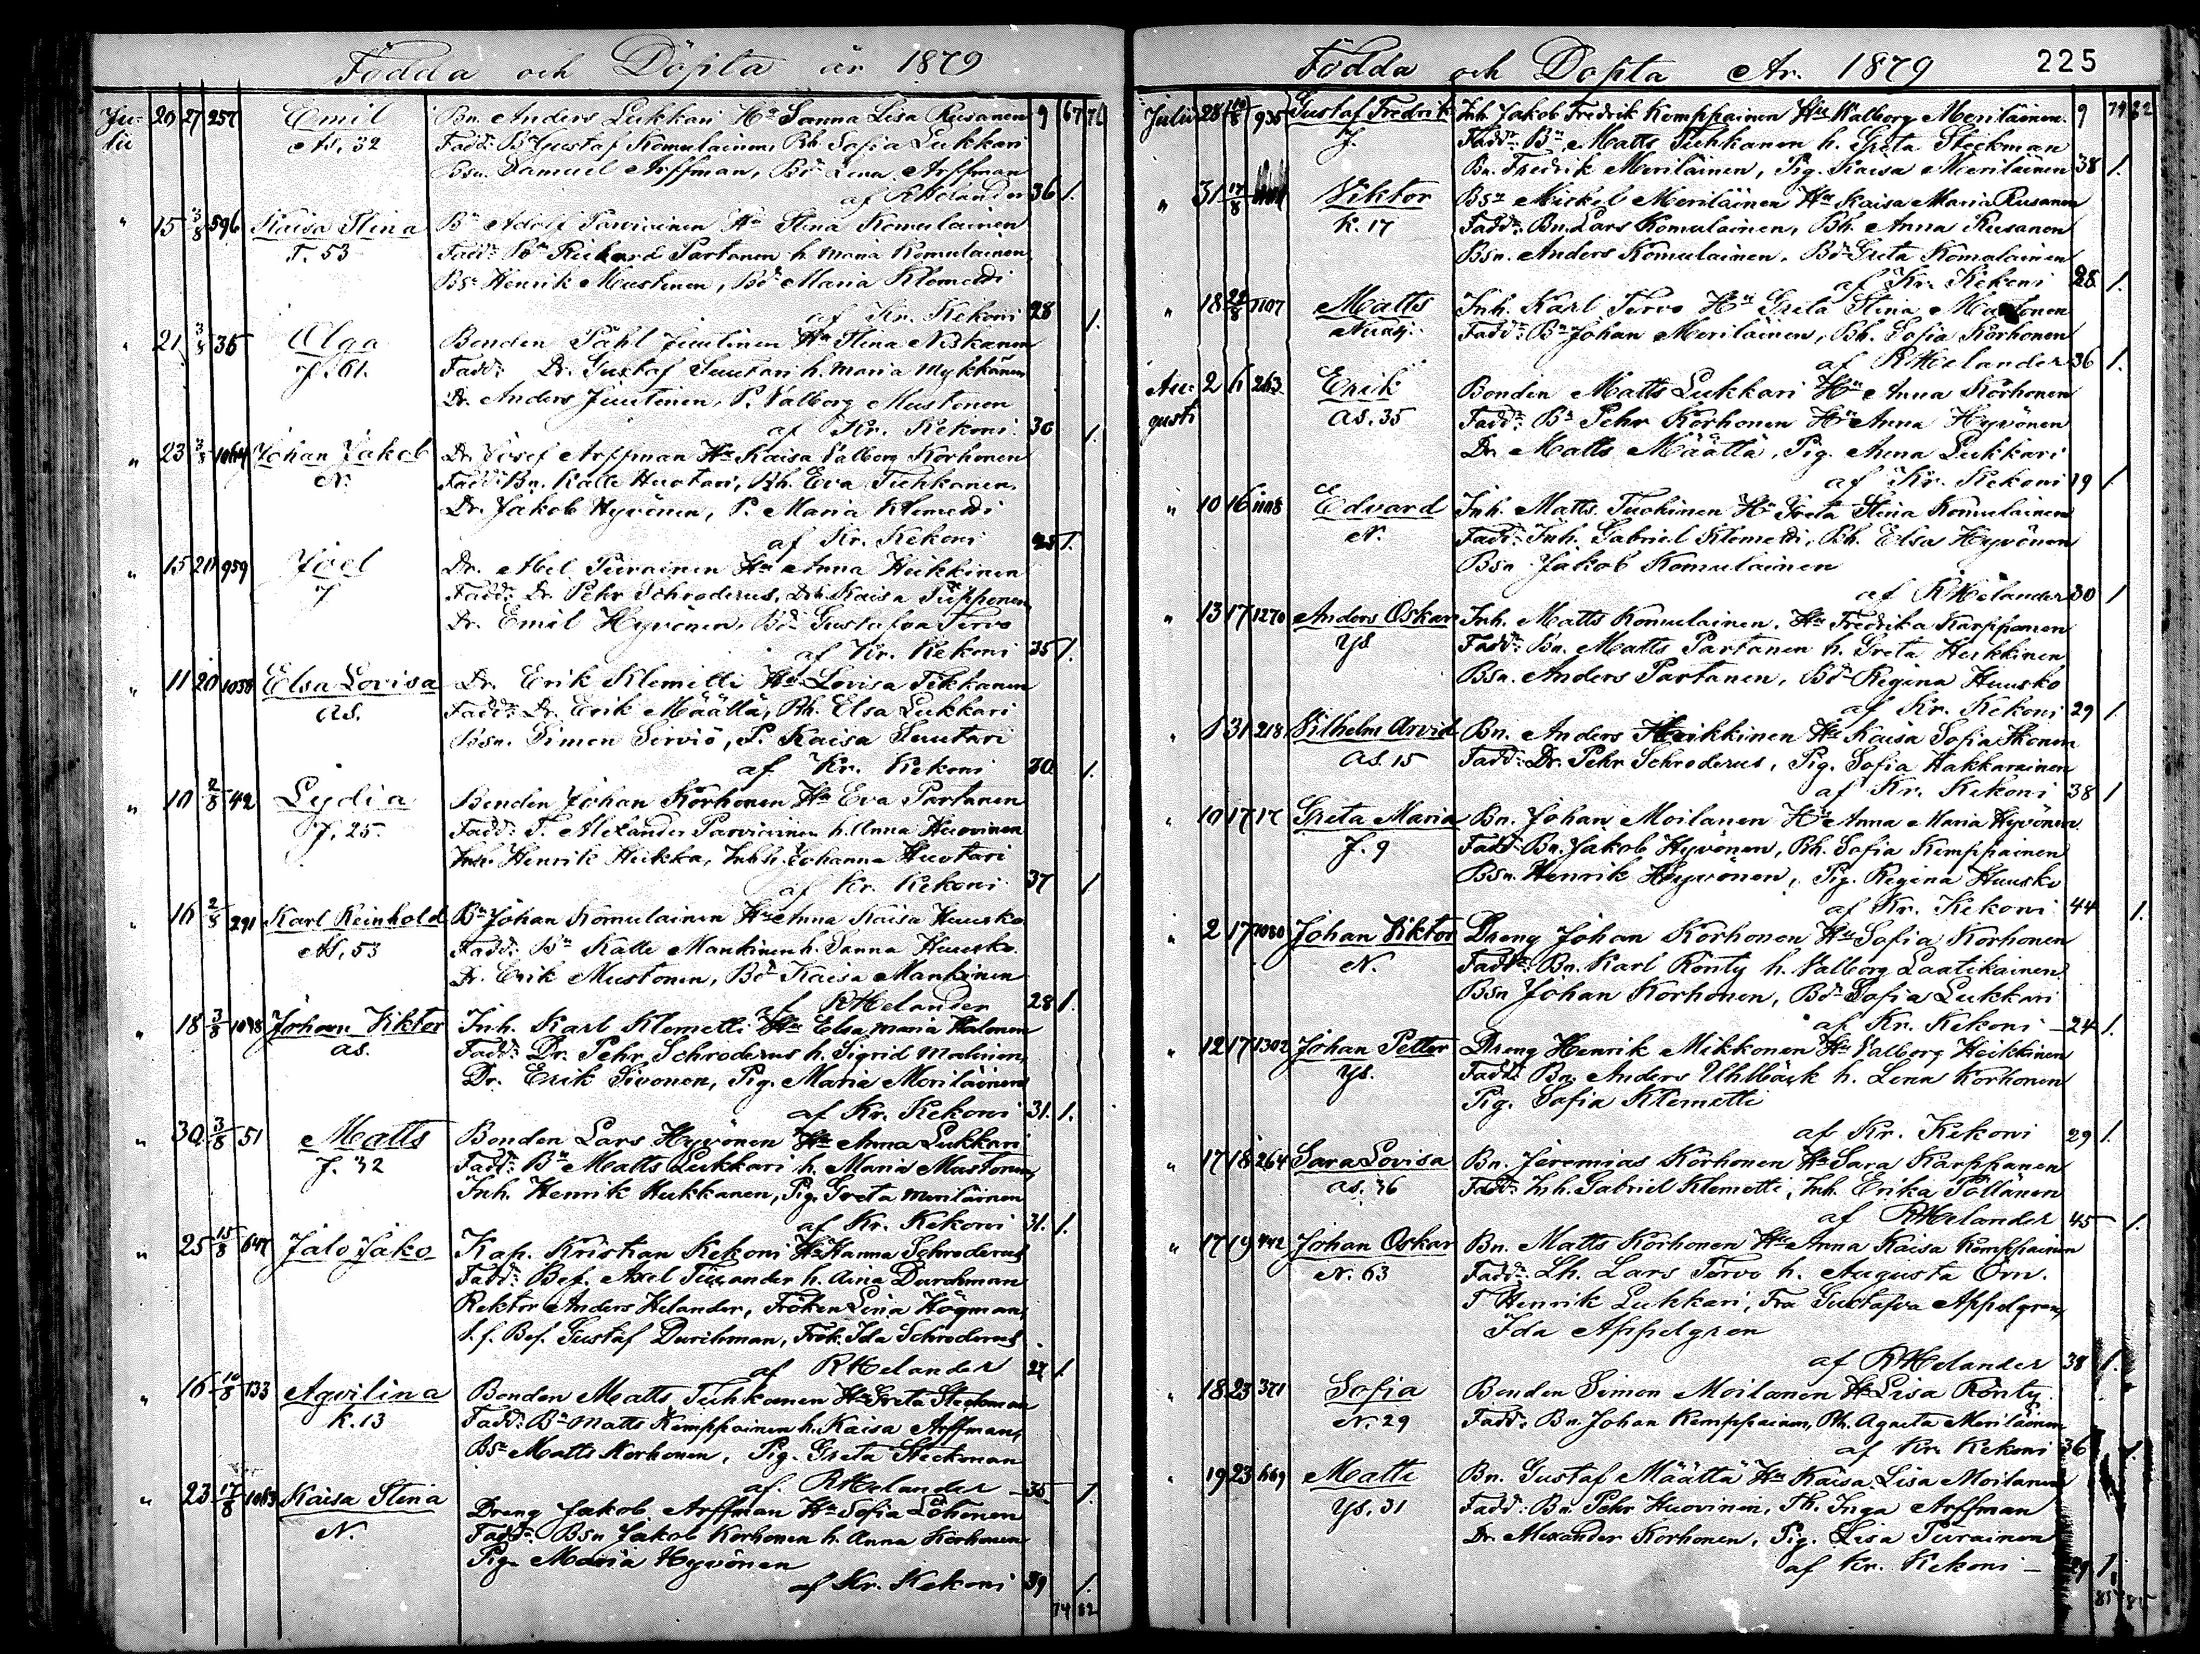 Födda och Döpta år 1879
Julii 20 27 257 Emil Bn. Anders Lukkari Hu Sanna Lisa Rusanen 9 67 76
As. 32 Fadd: Bn Gustaf Komulainen, Bh. Sofia Lukkari
Bsn. Samuel Arffman, Bd Lena Arffman
af RHelander 36 1.
" 15 3/8 596 Kaisa Stina Bn Adolf Parviainen Hu Stina Komulainen
T. 53 Fadd: Bn Rickard Partanen h. Maria Komulainen
Bsn Henrik Mustonen, Bd Maria Klemetti
af Kr. Kekoni 28 1.
" 21 3/8 36 Olga Bonden Påhl Juutinen Hu Stina Niskanen
J. 61. Fadd: Dr. Gustaf Suutari h. Maria Mykkänen
Dr. Anders Juutinen, P. Valborg Mustonen
af Kr. Kekoni 30 1.
" 23 3/8 1064 Johan Jakob Dr. Josef Arffman Hu Kaisa Valborg Korhonen
N. Fadd: Bn. Kalle Huotari, Bh. Eva Tuhkanen.
Dr. Jakob Hyvönen, P. Maria Klemetti
af Kr. Kekoni 25 1.
" 15 20 959 Joel Dr. Abel Piirainen Hu Anna Heikkinen
J Fadd: Dr. Pehr Schroderus, Drh. Kaisa Piipponen,
Dr. Emil Hyvönen, Bd. Gustafva Tervo
af Kr. Kekoni 35 1.
" 11 20 1038 Elsa Lovisa Dr. Erik Klemetti Hu Lovisa Tikkanen
As. Fadd: Dr. Erik Määttä, Bh. Elsa Lukkari
Bsn. Simon Serviö, P. Kaisa Suutari
af Kr. Kekoni 30 1.
" 10 2/8 42 Lydia Bonden Johan Korhonen Hu Eva Partanen
J. 25. Fadd: T. Alexander Parviainen h. Anna Huovinen
Inh. Henrik Heikka, Inhh. Johanna Huotari
af Kr. Kekoni 37 1
" 16 2/8 291 Karl Reinhold Bn Johan Komulainen Hu Anna Kaisa Huusko
As. 53 Fadd: Bn Kalle Mankinen h. Sanna Huusko.
Dr. Erik Mustonen, Bd Kaisa Mankinen
af RHelander 28 1.
" 18 3/8 1098 Johan Viktor Inh. Karl Klemetti Hu Elsa Maria Halonen
As. Fadd: Dr. Pehr Schroderus h. Sigrid Malinen,
Dr. Erik Sivonen, Pig. Maria Meriläinen
af Kr. Kekoni 31. 1.
" 30 3/8 51 Matts Bonden Lars Hyvönen Hu Anna Lukkari
J. 32 Fadd: Bn Matts Lukkari h. Maria Mustonen,
Inh. Henrik Hukkanen, Pig. Greta Meriläinen
af Kr. Kekoni 31. 1.
" 25 15/8 647 Jalo Jako Kap. Kristian Kekoni Hu Hanna Schroderus
Fadd: Bef. Axel Tizander h. Aina Durchman
Rektor Anders Helander, Fröken Lina Högman,
s.f. Bef. Gustaf Durchman, Frök. Ida Schroderus
af RHelander 27 1.
" 16 10/8 133 Aqvilina Bonden Matts Tuhkanen Hu Greta Steckman
K. 13 Fadd: Bn Matts Kemppainen h. Kaisa Arffman,
Bsn Matts Korhonen, Pig. Greta Steckman
af RHelander 35 1.
" 23 17/8 1063 Kaisa Stina Dreng Jakob Arffman Hu Sofia Löhönen
N. Fadd: Bsn Jakob Korhonen h. Anna Korhonen
Pig. Maria Hyvönen
af Kr. Kekoni 39 1.
74 82
Födda och Döpta År. 1879 225
Julii 28 10/8 935 Gustaf Fredrik Inh. Jakob Fredrik Kemppainen Hu Valborg Meriläinen. 9 74 82
J. Fadd: Bn. Matts Tuhkanen h. Greta Steckman
Bn. Fredrik Meriläinen, Pig. Kaisa Meriläinen 38 1.
" 31 17/8 Viktor Bsn Mickel Meriläinen Hu Kaisa Maria Rusanen
K. 17 Fadd: Bn. Lars Komulainen, Bh. Anna Rusanen
Bsn. Anders Komulainen, Bd Greta Komulainen
af Kr. Kekoni 28 1.
" 18 24/8 1107 Matts Inh. Karl Tervo Hu Greta Stina
Fadd: Bn Johan Meriläinen, Bh. Sofia Korhonen
af RHelander 36 1.
Augusti 2 6 263 Erik Bonden Matts Lukkari Hu Anna Korhonen
As. 35 Fadd: Bn Pehr Korhonen Hu Anna Hyvönen
Dr. Matts Määttä, Pig. Anna Lukkari
af Kr. Kekoni 19 1.
" 10 16 1108 Edvard Inh. Matts Tuohinen Hu Greta Stina Komulainen
N. Fadd: Inh. Gabriel Klemetti, Bh. Elsa Hyvönen
Bsn Jakob Komulainen
af RHelander 30 1
" 13 17 1270 Anders Oskar Inh. Matts Komulainen, Hu Fredrika Karppanen
Ys Fadd: Bn. Matts Partanen h. Greta Heikkinen
Bsn. Anders Partanen, Bd Regina Huusko
af Kr. Kekoni 29 1.
" 1 31 218 Vilhelm Arvid Bn. Anders Heikkinen Hu Kaisa Sofia Ikonen
As. 15 Fadd: Dr. Pehr Schroderus, Pig. Sofia Hakkarainen
af Kr. Kekoni 38 1
" 10 17 17 Greta Maria Bn. Johan Moilanen Hu Anna Maria Hyvönen
J. 9 Fadd: Bn. Jakob Hyvönen, Bh. Sofia Kemppainen
Bsn. Henrik Hyvönen, Pig. Regina Huusko
af Kr. Kekoni 44 1.
" 2 17 1080 Johan Viktor Dreng Johan Korhonen Hu Sofia Korhonen
N. Fadd: Bn. Karl Rönty h. Valborg Laatikainen.
Bsn Johan Korhonen, Bd Sofia Lukkari
af Kr. Kekoni 24 1.
" 12 17 1302 Johan Petter Dreng Henrik Mikkonen Hu Valborg Heikkinen
Ys. Fadd: Bn. Anders Uhlbäck h. Lena Korhonen
Pig. Sofia Klemetti
af Kr. Kekoni 29 1.
" 17 18 264 Sara Lovisa Bn. Jeremias Korhonen Hu Sara Karppanen
As. 36 Fadd: Inh. Gabriel Klemetti, Inh. Erika Pöllänen
af RHelander 45 1.
" 17 19 442 Johan Oskar Bn. Matts Korhonen Hu Anna Kaisa Kemppainen
N. 63 Fadd: Lh. Lars Tervo h. Augusta Örn.
T Henrik Lukkari, Fra Gustafva Appelgren,
Ida Appelgren
af RHelander 38 1.
" 18 23 371 Sofia Bonden Simon Moilanen Hu Lisa Rönty.
N. 29 Fadd: Bn. Johan Kemppainen, Bh. Agneta Meriläinen
af Kr. Kekoni 36 1.
" 19 23 669 Matti Bn. Gustaf Määttä Hu Kaisa Lisa Moilanen
Ys. 31 Fadd: Bn Pehr Huovinen, Th. Inga Arffman
Dr. Alexander Korhonen, Pig. Lisa Piirainen
af Kr. Kekoni 29 1.
85 85